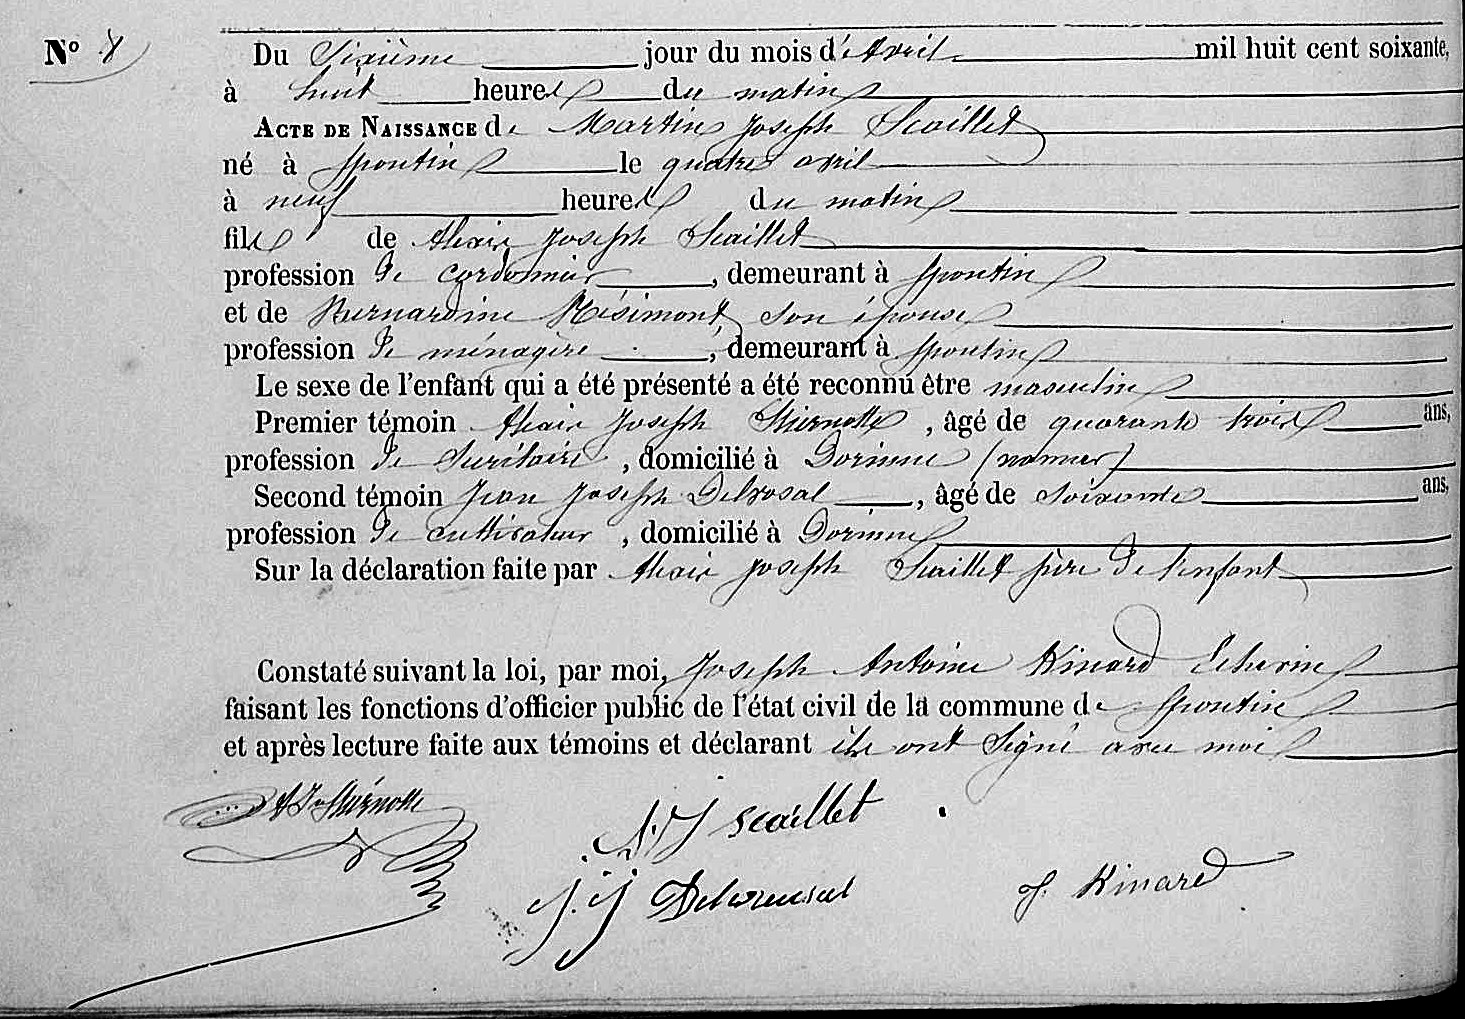 No 8
Du Sixième jour du mois d'Avril mil huit cent soixante,
à huit heures du matin
ACTE DE NAISSANCE de Martin Joseph Scaillet
né à Spontin le quatre avril
à neuf heures du matin
fils de Alexis Joseph Scaillet
profession de cordonnier, demeurant à Spontin
et de Bernardine Mésimont son épouse
profession de ménagère, demeurant à Spontin
Le sexe de l'enfant qui a été présenté a été reconnu être masculin
Premier témoin Alexis Joseph Stiernotte, âgé de quarante trois ans,
profession de, domicilié à Dorinne (namur)
Second témoin Jean Joseph Delvosal, âgé de soixante ans,
profession de cultivateur, domicilié à Dorinne
Sur la déclaration faite par Alexis Joseph Scaillet père de l'enfant
Constaté suivant la loi, par moi, Joseph Antoine Kinard Echevin
faisant les fonctions d'officier public de l'état civil de la commune de Spontin
et après lecture faite aux témoins et déclarant ils ont Signé avec moi
AJ Stiernotte
A.J Scaillet
J.J
J. Kinard